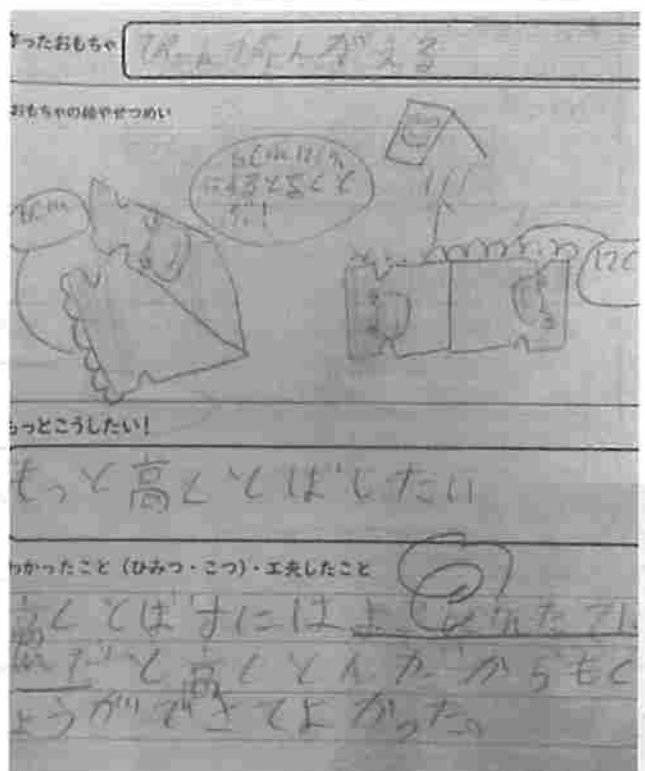 作ったおもちゃ ぴょんぴょんがえる
おもちゃの絵やせつめい
にすると高くと
ぶ!
12c
もっとこうしたい!
もっと高くとばしたい
わかったこと(ひみつ・こつ)・工夫したこと
高くとばすには
と高くとんだからもく
ひょうができてよかった。